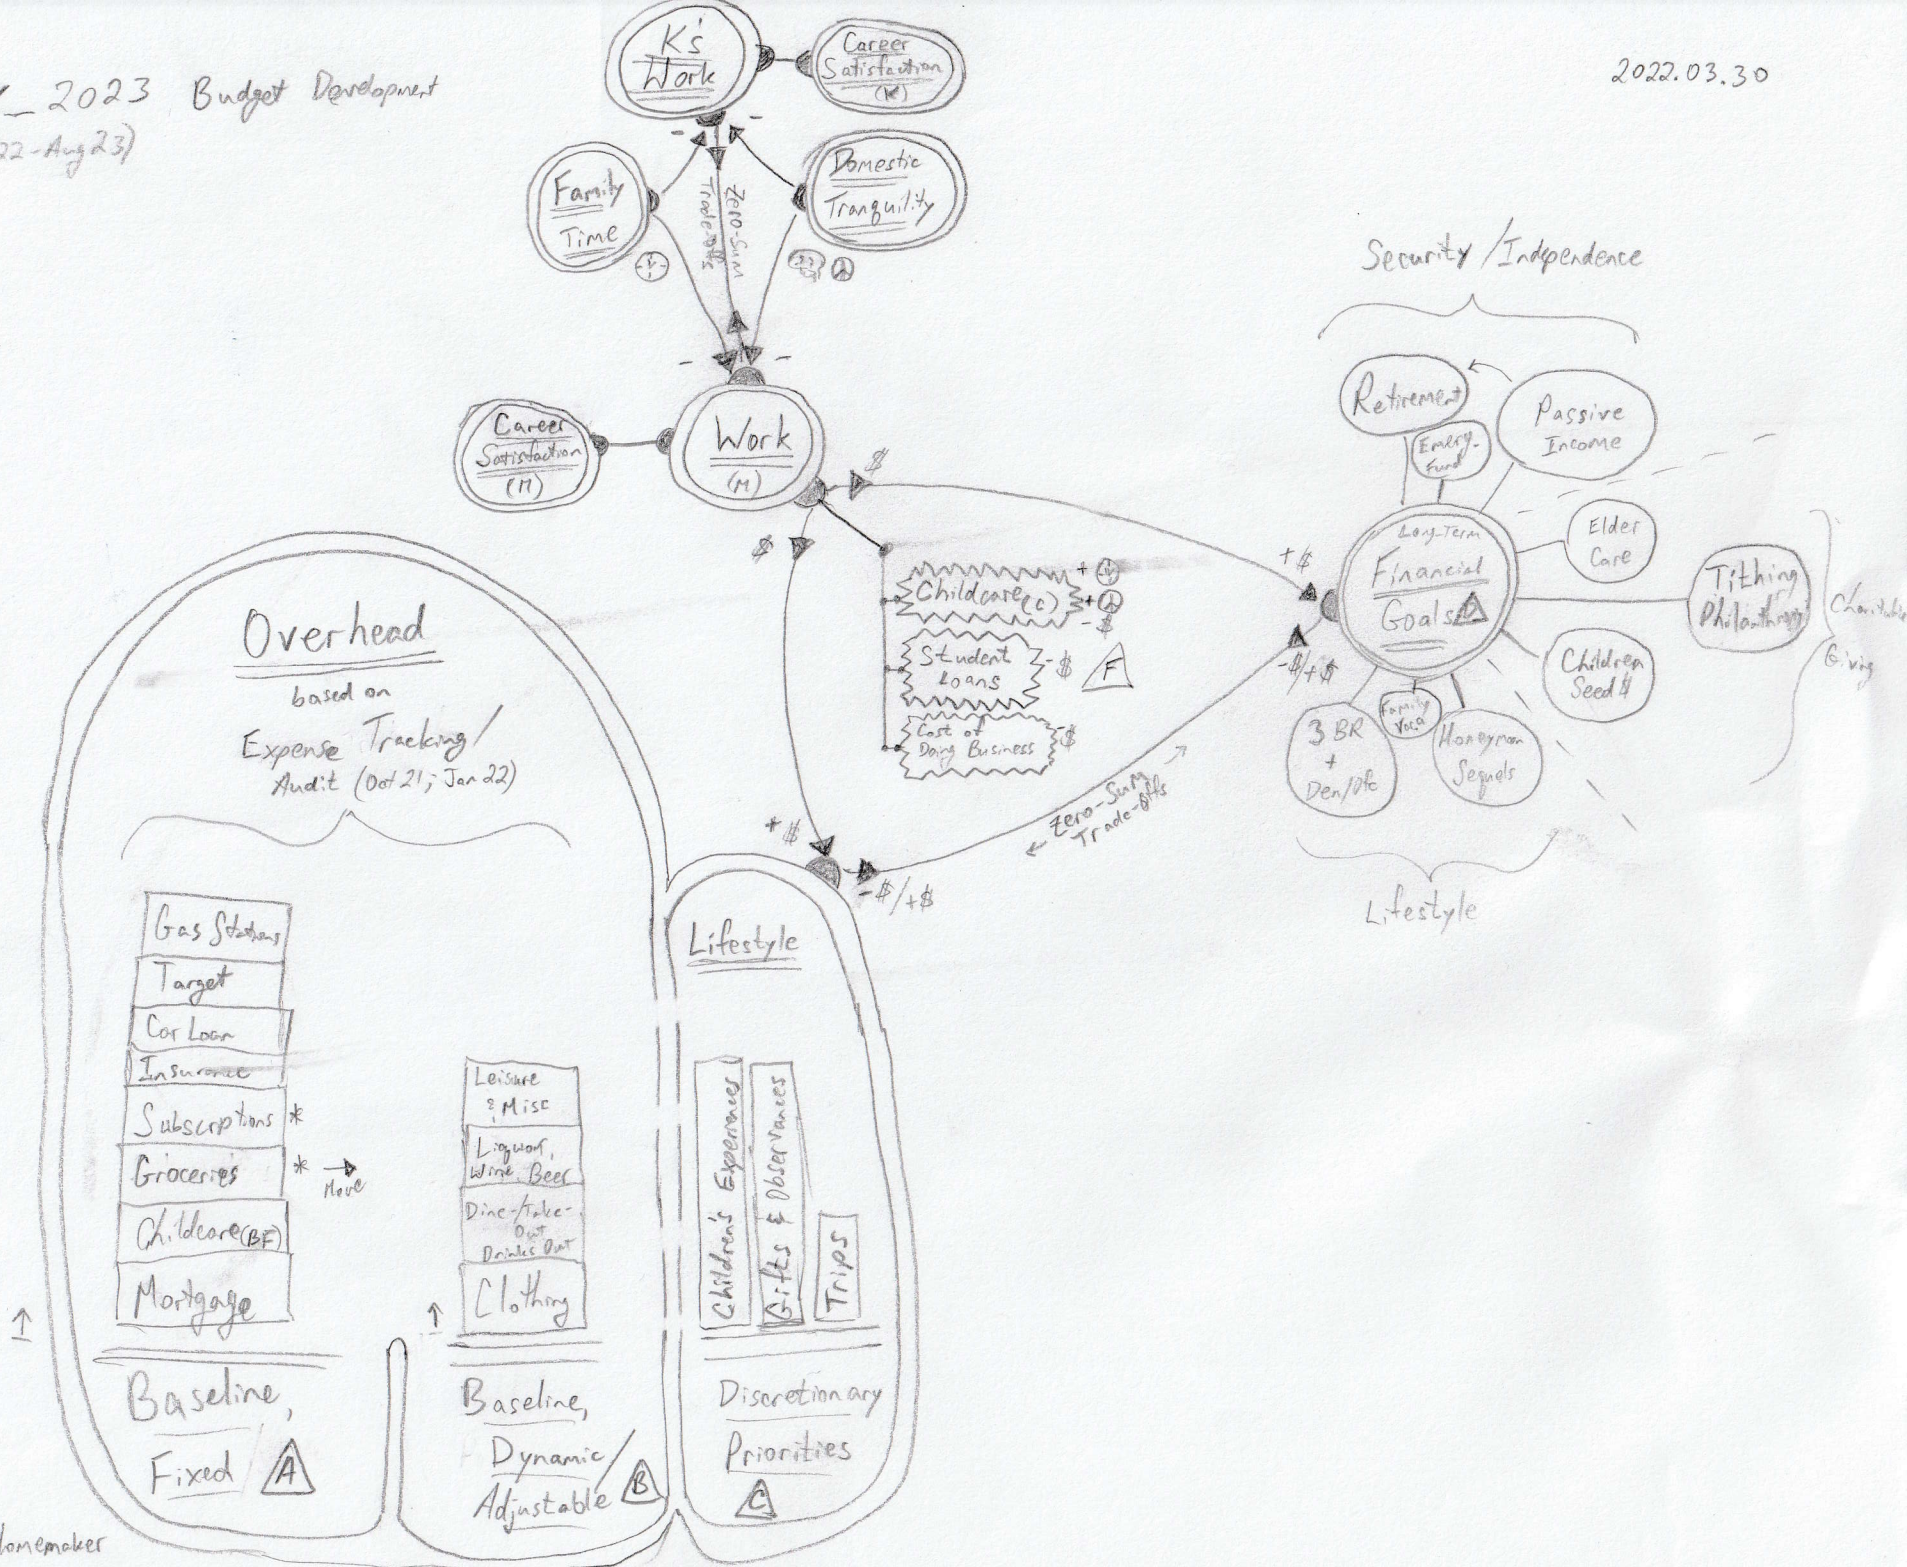 _2023 Budget Development
22-Aug23)
2022.03.30
K's
Work
Career
Satisfaction
(K)
Family
Time
Domestic
Tranquility
Zero-Sum
Trade-offs
- -
- -
Career
Satisfaction
(M)
Work
(M)
$
$
Childcare(c)
+
+
- $
Student
Loans
- $
F
Cost of
Doing Business
- $
+$
-$/+$
Zero-Sum
Trade-offs
+$
-$/+$
Security/Independence
Retirement
Emerg.
Fund
Passive
Income
Long-Term
Financial
Goals D
Elder
Care
Tithing
Philanthropy
Charitable
Giving
Children
Seed $
3 BR
+
Den/Ofc
Family
Vaca
Honeymoon
Sequels
Lifestyle
Overhead
based on
Expense Tracking/
Audit (Oct 21; Jan 22)
Gas Stations
Target
Car Loan
Insurance
Subscriptions *
Groceries * →
Move
Childcare(BF)
Mortgage
↑
Baseline,
Fixed A
Leisure
& Misc
Liquor,
Wine, Beer
Dine-/Take-
Out
Drinks Out
Clothing
↑
Baseline,
Dynamic/
Adjustable B
Lifestyle
Children's Experiences
Gifts & Observances
Trips
Discretionary
Priorities
C
Homemaker